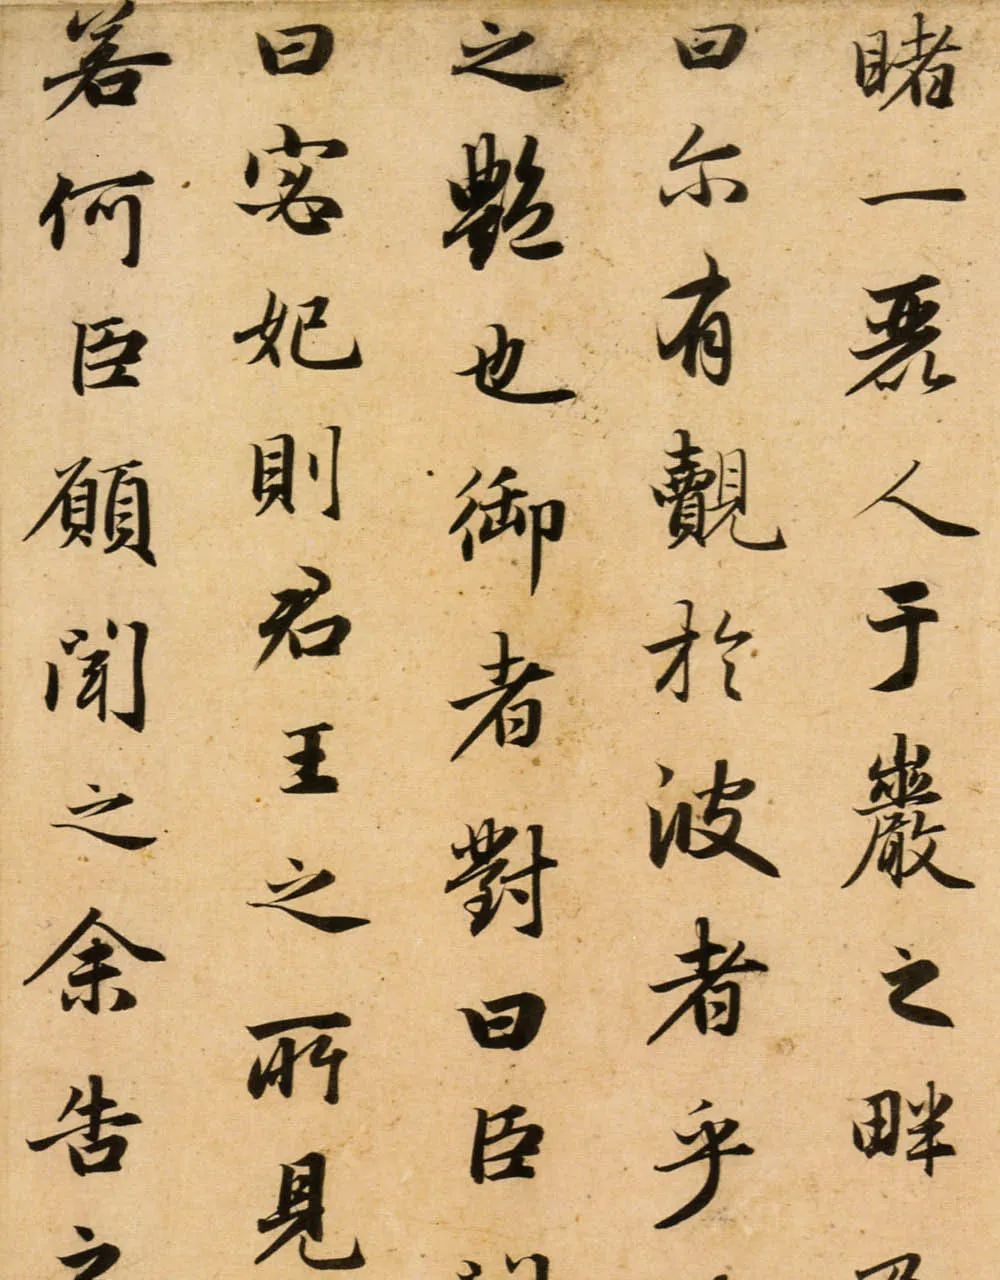 睹一麗人于巖之畔
曰尓有覿於彼者乎
之豔也御者對曰臣
曰宓妃則君王之所見
若何臣願聞之余告之